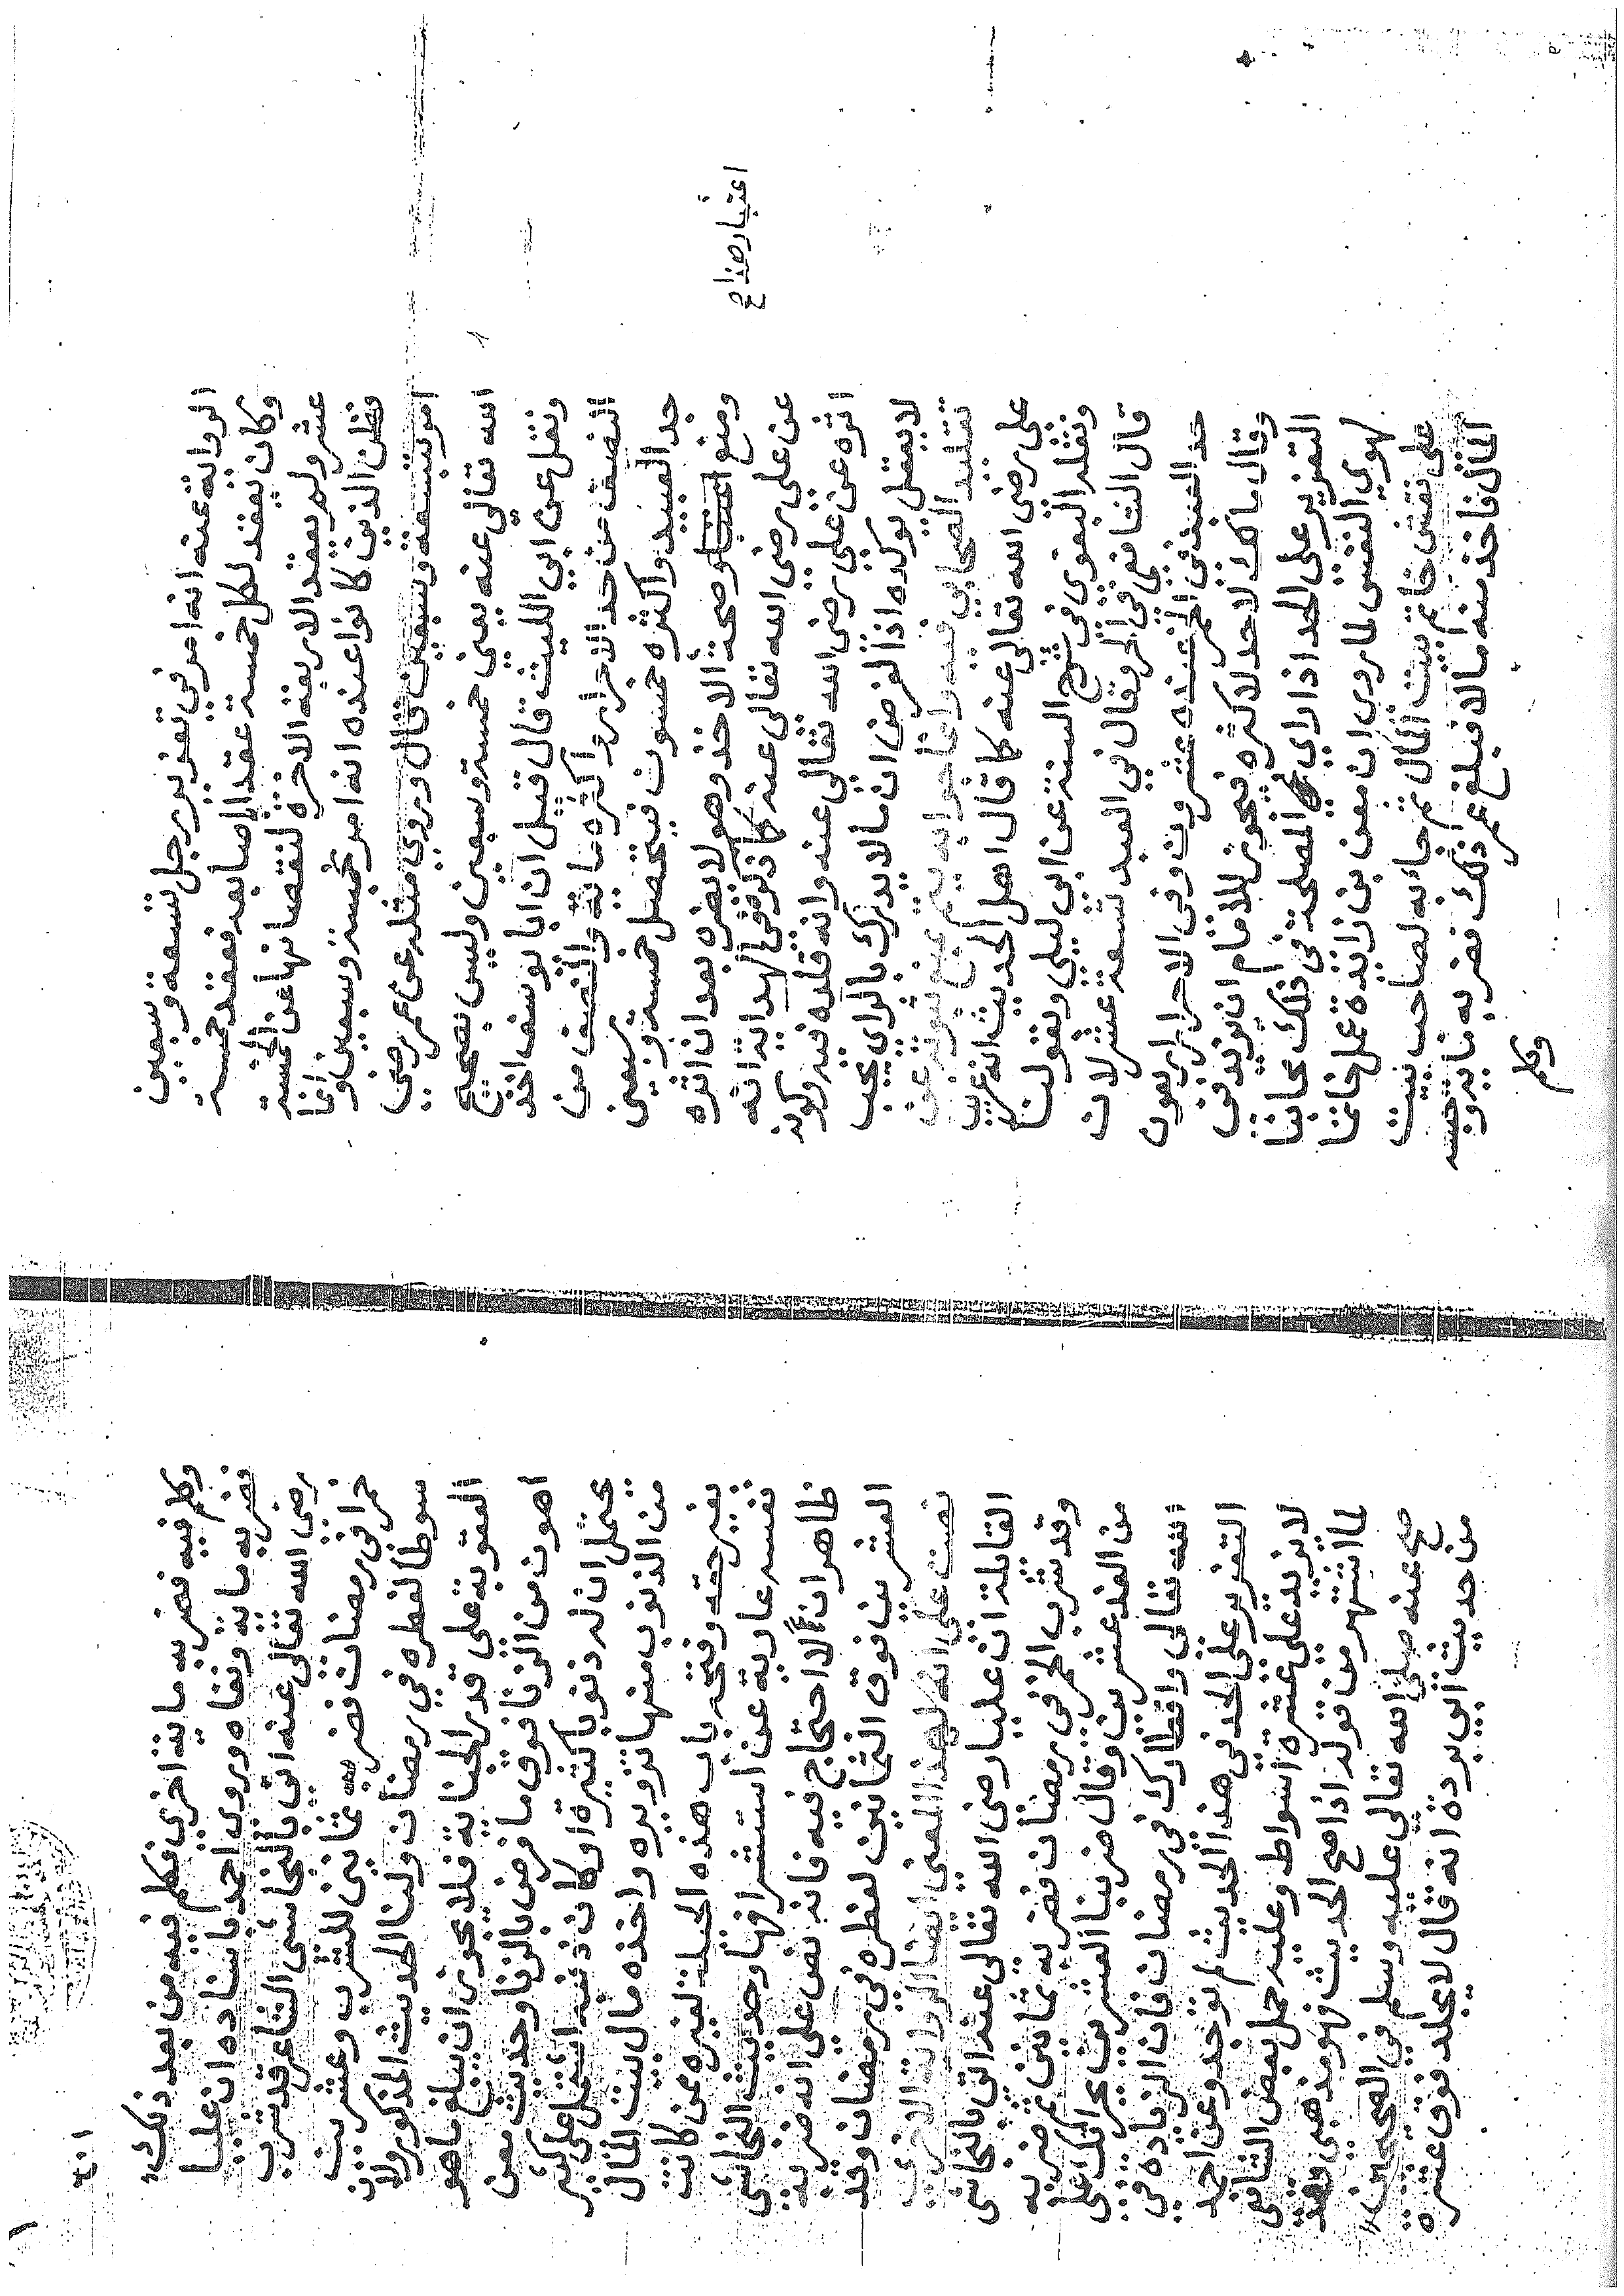 الرواية عنه انه امر في تعزير رجل بتسعة وسبعين
وكان يعقد لكل خمسة عقدا باصابعه فعقد خمسة
عشر ولم يعقد الاربعة الاخيرة لنقصانها عن الخمسة
فظن الذين كانوا عنده انه امر بخمسة وسبعين وانما
امر بتسعة وسبعين قال وروي مثله عن عمر رضي
الله تعالي عنه يعني خمسة وسبعين وليس بصحيح
ونقل عن ابي الليث قال قيل ان ابا يوسف اخذ
النصف من حد الاحرار واكثره مائة والنصف من
حد العبيد واكثره خمسون فيتحصل خمسة وسبعين
ومنع صحة الاخذ وهو لا يضره بعد ان اثره
اعتبار هذا صح
عن علي رضي الله تعالي عنه كما ذكره في الهداية انه
اثره عن علي رضي الله تعالي عنه وانه قلده فيه وكونه
لا يعقل يوكده اذا الغرض ان ما لا يدرك بالراي يجب
تقليد الصحابي فيه وانما جوابه بمنع ثبوته عن
علي رضي الله تعالي عنه كما قال اهل الحديث انه غريب
ونقله البغوي في شرح السنة عن ابن ابي ليلي وبقولنا
قال الشافعي في الحر وقال في العبد تسعة عشر لان
حد العبد في الخمر عنده عشرون وفي الاحرار اربعون
وقال مالك لا حد لاكثره فيجوز للامام ان يزيد في
التعزير علي الحد اذا راي المصلحة في ذلك مجانبا
لهوي النفس لما روي ان معن بن زايدة عمل خاتما
علي نقش خاتم بيت المال ثم جاء به لصاحب بيت
المال فاخذ منه مالا فبلغ عمر ذلك فضربه مائة وحبسه
وكلم
٢٠١
وكلم فيه فضربه ماية اخري فكلم فيه من بعد ذلك
فضربه مائة ونفاه وروي احمد باسناده ان عليا
رضي الله تعالي عنه اتي بالنجاشي الشاعر قد شرب
خمرا في رمضان فضربه ثمانين للشرب وعشرين
سوطا لفطره في رمضان ولنا الحديث المذكور ولان
العقوبة علي قدر الجناية فلا يجوز ان يبلغ بما هو
اهون من الزنا فوق ما فرض بالزنا وحديث معن
يحتمل ان له ذنوبا كثيرة او كان ذنبه اشتمل علي كثير
من الذنوب منها تزويره واخذه مال بيت المال
بغير حقه وفتحه باب هذه الحيلة لغيره ممن كانت
نفسه عارية عن استشرافها وحديث النجاشي
ظاهر ان لا احتجاج فيه فانه نص علي انه ضربه
العشرين فوق الثمانين لفطره في رمضان وقد
نصت علي انه لهذا المعني ايضا الرواية الاخري
القايلة ان عليا رضي الله تعالي عنه اتي بالنجاشي
وقد شرب الخمر في رمضان فضربه ثمانين ثم ضربه
من الغد عشرين وقال ضربنا العشرين بجرأتك علي
الله تعالي وافطارك في رمضان فاين الزيادة في
التعزير علي الحد في هذا الحديث ثم توجد وعن احمد
لا يزيد علي عشرة اسواط وعليه حمل بعض الشافعي
لما اشتهر من قوله اذا صح الحديث فهو مذهبي وقد
صح عنه صلي الله تعالي عليه وسلم في الصحيحين
من حديث ابي بردة انه قال لا يجلد فوق عشرة